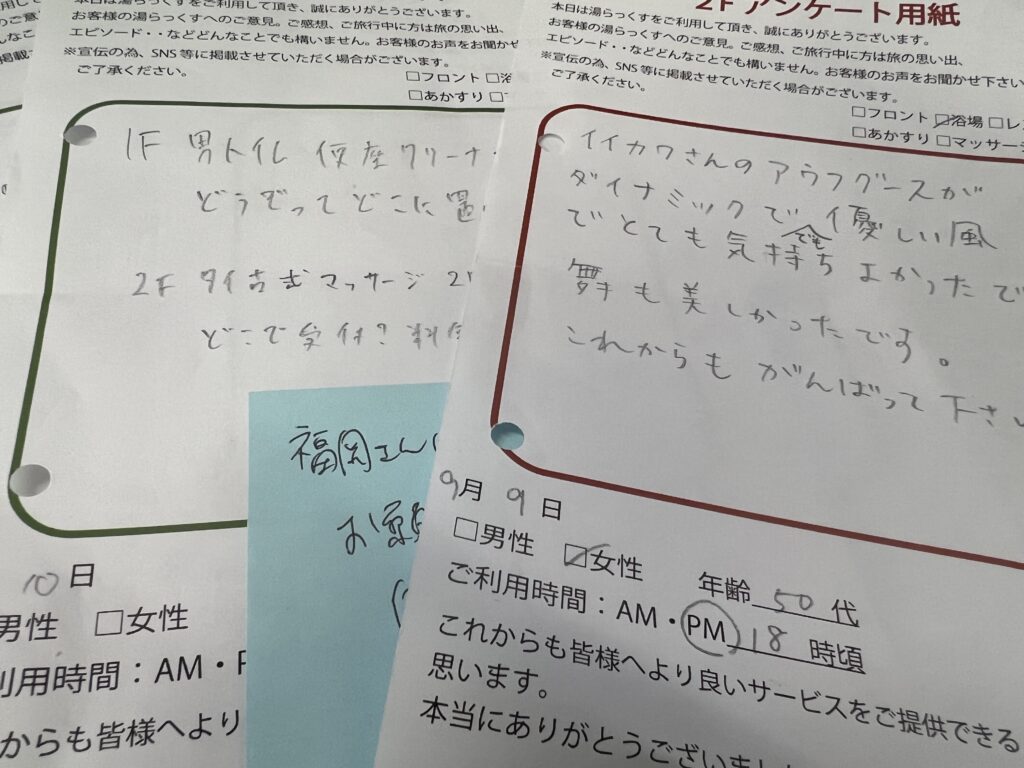 本日は湯らっくすをご利用して頂き、誠にありがとうございます。
お客様の湯らっくすへのご意見。ご感想、ご旅行中に方は旅の思い出、
エピソード・・などどんなことでも構いません。お客様のお声をお聞かせ
※宣伝の為、SNS等に掲載させていただく場合がございます。
ご了承ください。
□フロント □浴
□あかすり
1F 男トイレ 便座クリーナ
どうやってどこに置
2F タイ古式マッサージ
どこで受付?料
10日
男性 □女性
利用時間:AM・P
からも皆様へより
福岡さん
お願
2Fアンケート用紙
本日は湯らっくすをご利用して頂き、誠にありがとうございます。
お客様の湯らっくすへのご意見。ご感想、ご旅行中に方は旅の思い出、
エピソード・・などどんなことでも構いません。お客様のお声をお聞かせ下さい
※宣伝の為、SNS等に掲載させていただく場合がございます。
ご了承ください。
□フロント ☑浴場 □レ
□あかすり □マッサージ
イイカワさんのアウフグースが
ダイナミックで優しい風
でとても気持ちよかったで
でも
舞も美しかったです。
これからもがんばって下さい
9月 9日
□男性 ☑女性 年齢 50代
ご利用時間:AM・PM 18時頃
これからも皆様へより良いサービスをご提供できる
思います。
本当にありがとうございまし